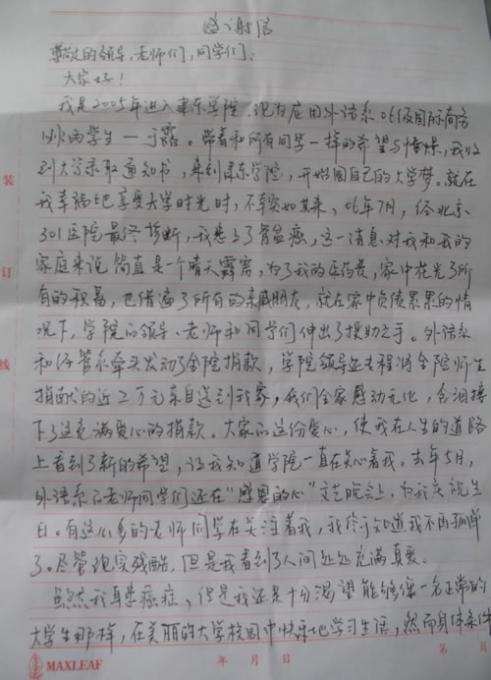 感谢信
尊敬的领导、老师们、同学们:
大家好!
我是2005年进入 东学院,现为应用外语系06级国际商务
班的学生一于露。带着和所有同学一样的希望与憧憬,我收
到大学录取通知书,来到 东学院,开始圆自己的大学梦。就在
我幸福地享受大学时光时,不幸突如其来,06年7月,经北京
301医院最终诊断,我患了骨盆癌,这一消息对我和我的
家庭来说简直是一个晴天霹雳,为了我的医药费,家中花光了所
有的积蓄,也借遍了所有的亲戚朋友,就在家中负债累累的情
况下,学院的领导、老师和同学们伸出了援助之手。外语系
和经管系牵头发动了全院捐款,学院领导 将全院师生
捐献的近2万元亲自送到我家,我们全家感动无比,含泪接
下了这充满爱心的捐款。大家的这份爱心,使我在人生的道路
上看到了新的希望,让我知道学院一直在关心着我。去年5月,
外语系的老师同学们还在"感恩的心"文艺晚会上,为我庆祝生
日。有这么多的老师同学在关注着我,我终于知道我不再孤单
了。尽管现实残酷,但是我看到了人间处处充满真爱。
虽然我身患癌症,但是我还是十分渴望能够像一名正常的
大学生那样,在美丽的大学校园中快乐地学习生活,然而身体条件
装
订
线
MAXLEAF 年 月 日 第 页